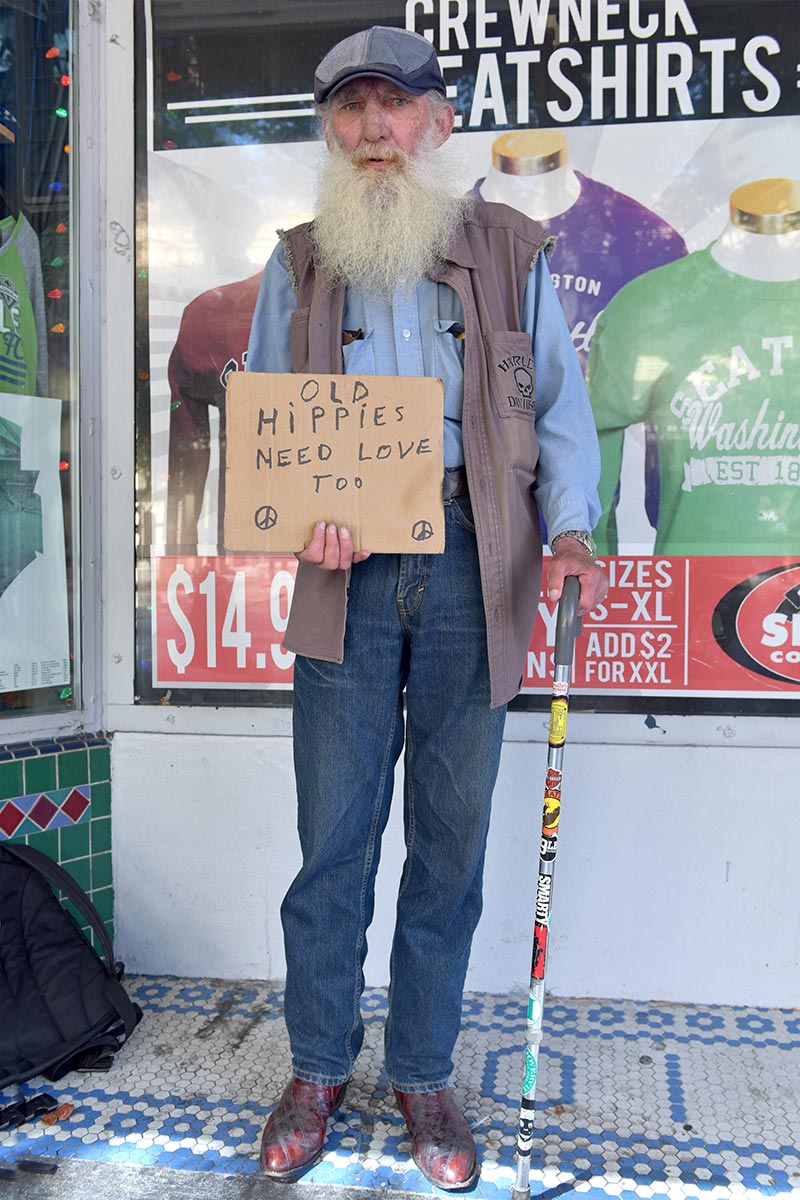 CREWNECK
EATSHIRTS
OLD
HiPPiES
NEED LOVE
TOO
HARLEY
DAVIDSON
NGTON
SEAT
Washin
EST 18
$14.9
SIZES
S-XL
ADD $2
FOR XXL
SMARTY